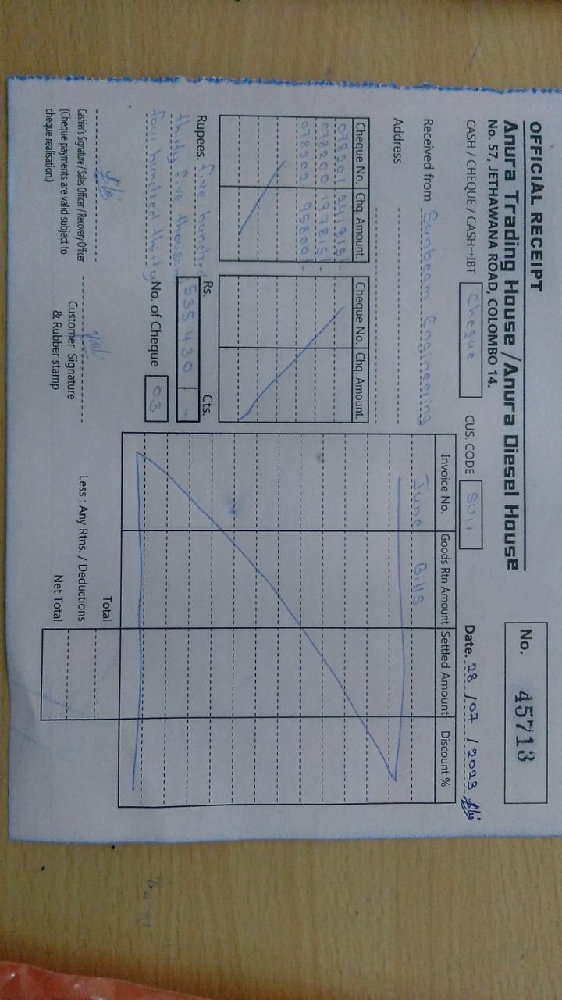 OFFICIAL RECEIPT
Anura Trading House / Anura Diesel House
No. 57, JETHAWANA ROAD, COLOMBO 14.
No. 45713
CASH / CHEQUE / CASH-IBT Cheque
CUS. CODE
Date. 28 / 07 / 2023
Received from Sunbeam Engineering
Address
Cheque No. Chq. Amount
Cheque No. Chq. Amount.
018201 241815
018200 197815
018300 95800
Rs. Cts.
Rupees. five hundred 535430 -
thirty five thousand
four hundred thirty No. of Cheque 03
Cashier's Signature / Sales Officer / Recovery Officer
(Cheque payments are valid subject to
cheque realisation)
Customer Signature
& Rubber stamp
Invoice No. Goods Rtn Amount Settled Amount Discount %
June Bills
Total
Less : Any Rtns. / Deductions
Net Total